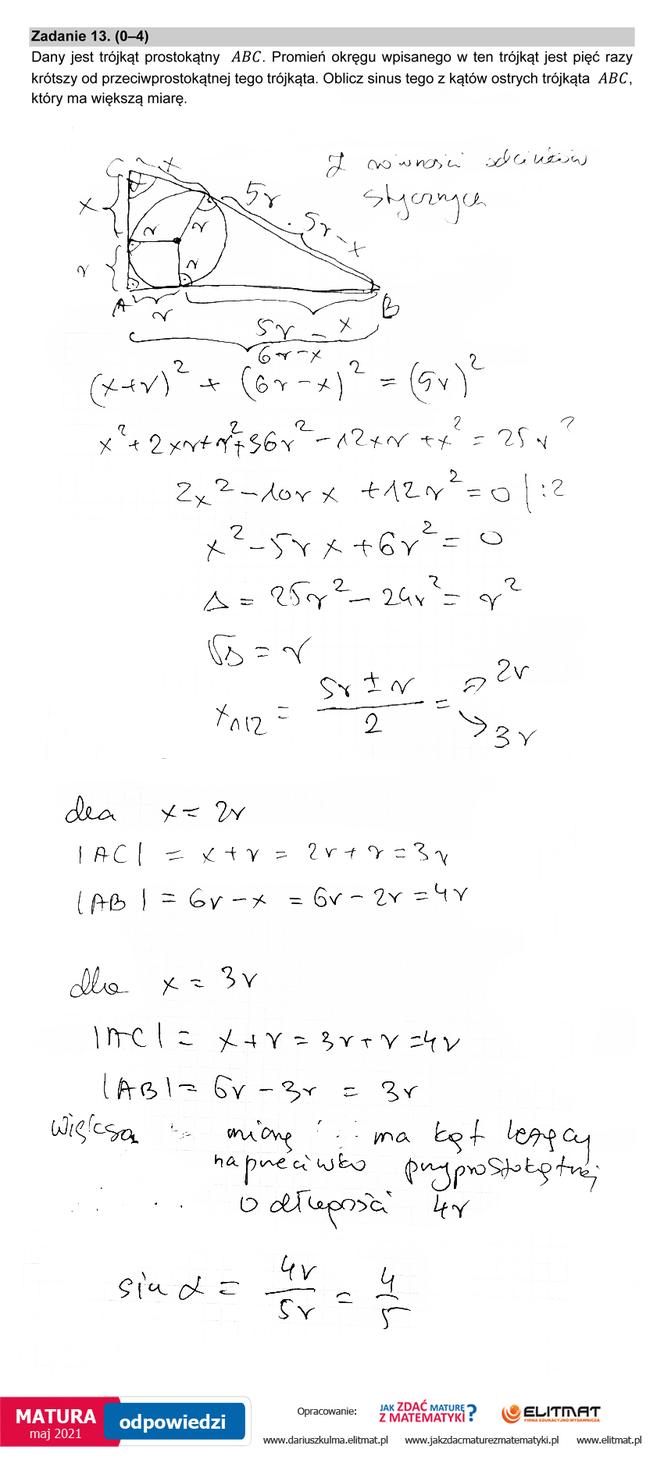 Zadanie 13. (0–4)
Dany jest trójkąt prostokątny ABC. Promień okręgu wpisanego w ten trójkąt jest pięć razy
krótszy od przeciwprostokątnej tego trójkąta. Oblicz sinus tego z kątów ostrych trójkąta ABC,
który ma większą miarę.
Z równości odcinków
stycznych
C x
x 5r
r r 5r-x
r r
A r B
5r - x
6r-x
(x+r)² + (6r-x)² = (5r)²
x²+2xr+r²+36r²-12xr+x²=25r²
2x²-10rx+12r²=0 |:2
x²-5rx+6r²=0
Δ = 25r²-24r²= r²
√Δ = r
x₁,₂ = (5r ± r)/2 = → 2r
→ 3r
dla x = 2r
|AC| = x+r = 2r+r = 3r
|AB| = 6r-x = 6r-2r = 4r
dla x = 3r
|AC| = x+r = 3r+r = 4r
|AB| = 6r-3r = 3r
większą miarę ma kąt leżący
naprzeciwko przyprostokątnej
o długości 4r
sin α = 4r/5r = 4/5
MATURA
maj 2021
odpowiedzi
Opracowanie:
JAK ZDAĆ MATURĘ
Z MATEMATYKI?
ELITMAT
FIRMA EDUKACYJNO-WYDAWNICZA
www.dariuszkulma.elitmat.pl www.jakzdacmaturezmatematyki.pl www.elitmat.pl